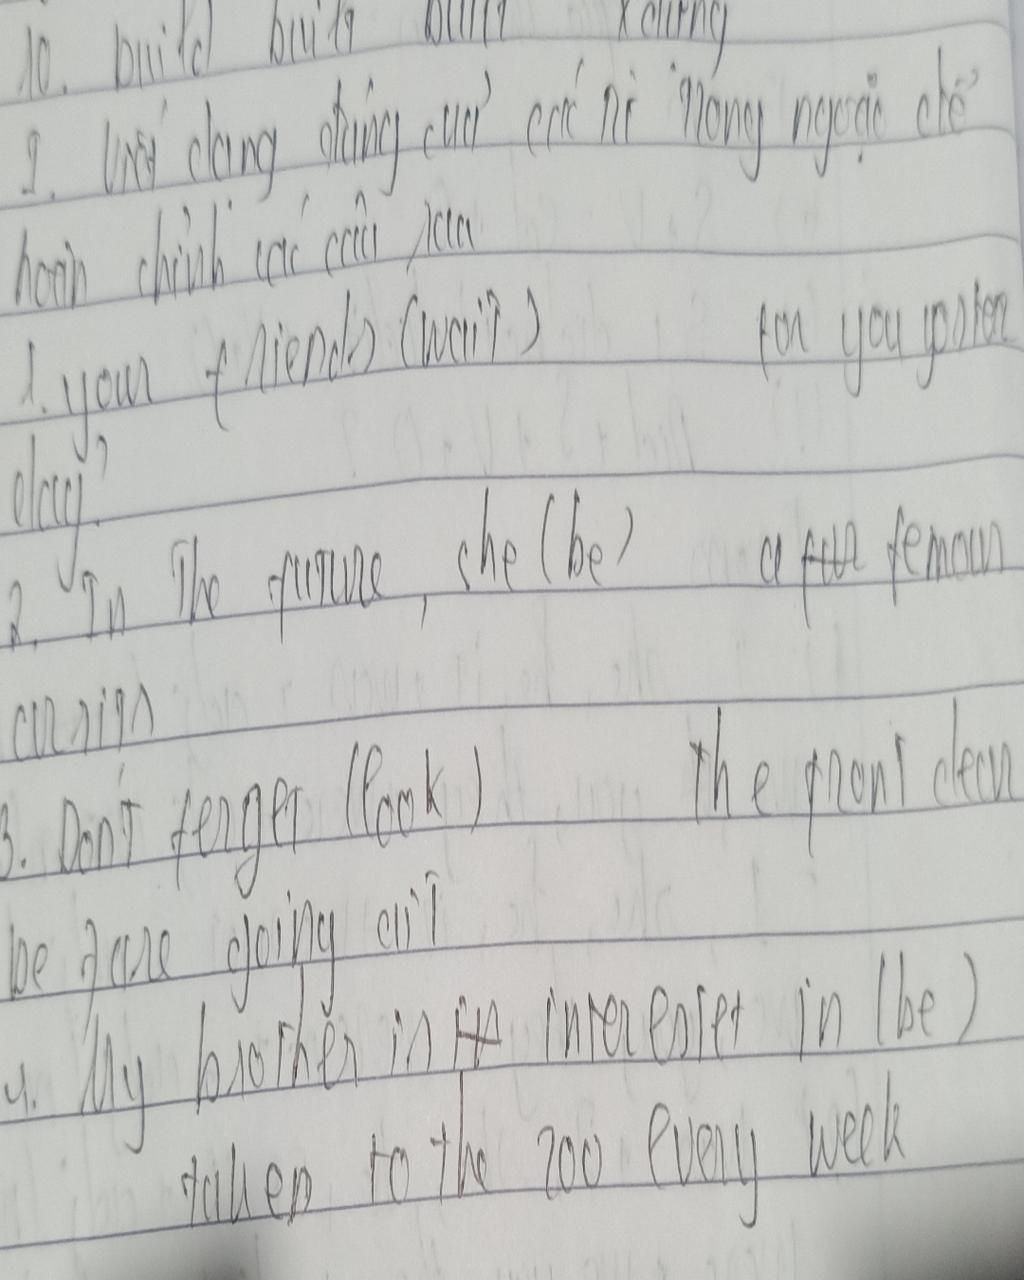 10. build built built xdựng
2. Viết dạng đúng của các từ trong ngoặc để
hoàn chỉnh các câu sau
1. your friends (wait) for you
?
2. In the future, she (be) a
3. Don't forget (lock) the front
before going out
4. My brother is in (be)
taken to the zoo every week